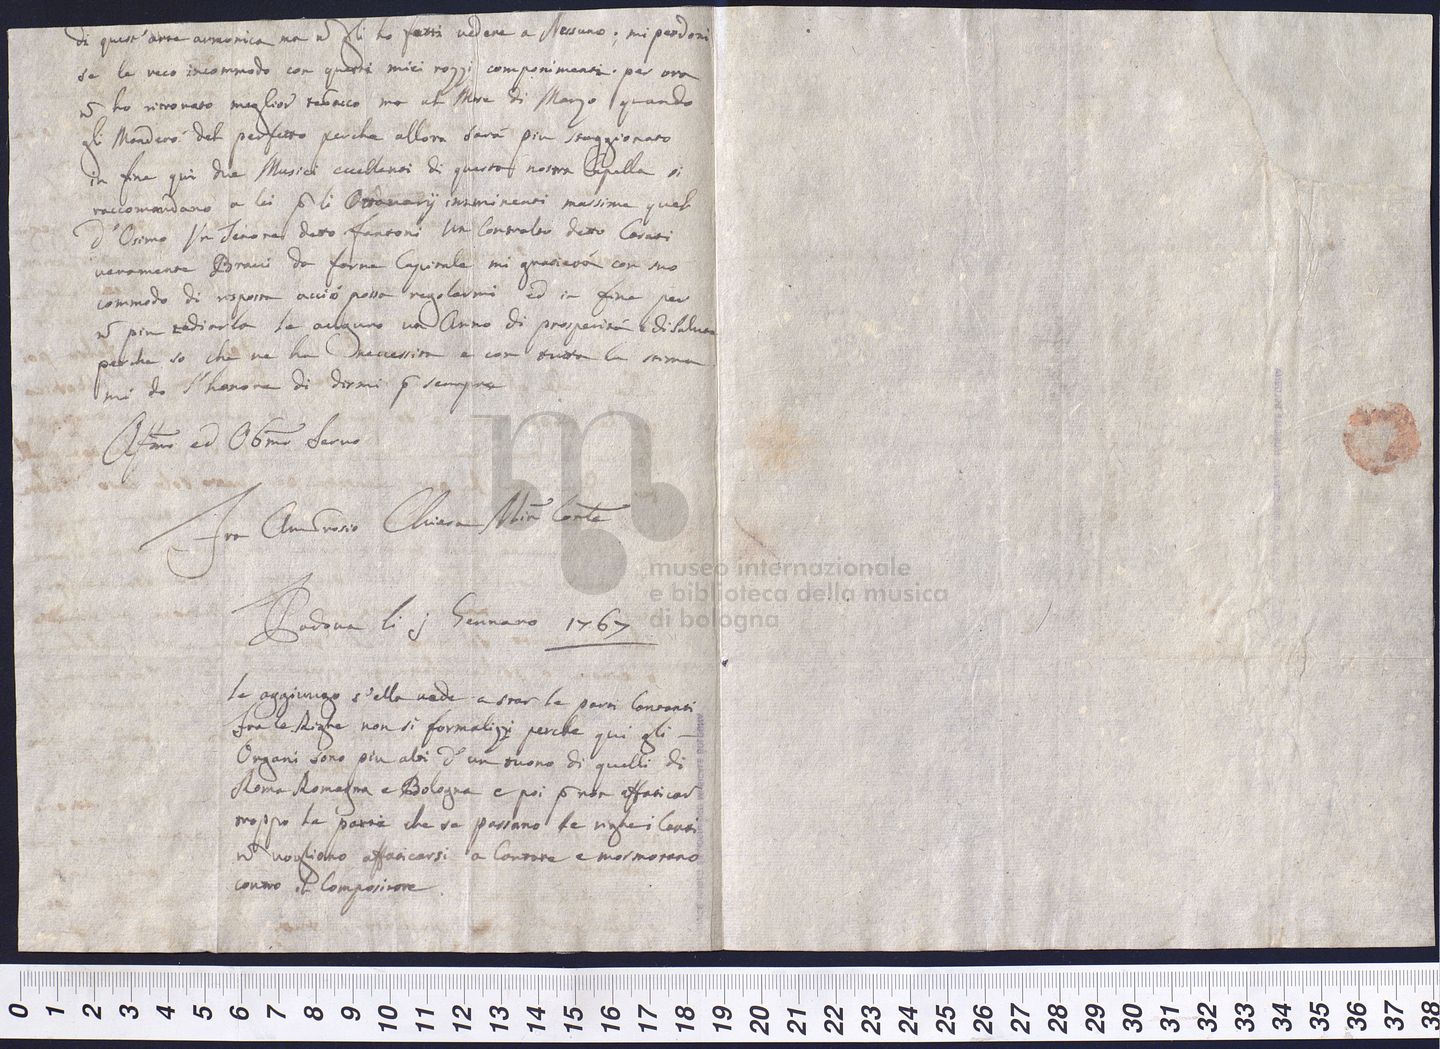 di quest'arte armonica ma n̄ gli ho fatti vedere a Nessuno; mi perdoni
se le reco incommodo con questi miei rozzi componimenti. per ora
n̄ ho ritrovato meglior tabacco ma al Mese di Marzo quando
gli Manderò del perfetto perche allora sarà piu staggionato
in fine qui due Musici eccellenti di questa nostra Capella si
raccomandano a lei p li Ottavarij imminenti massime quel
d'Osimo Un Tenore detto Fantoni Un Contralto detto
veramente Bravi da farne Capitale mi grazierà con suo
commodo di risposta acciò possa regolarmi ed in fine per
n̄ piu tediarla le auguro un Anno di prosperità e di salute
perche so che ne ha Neccessita e con tutta la stima
mi do l'honore di dirmi p sempre
Affmo ed Obmo Servo
Fra Ambrosio Chiesa Min Conle
Padova li j Gennaro 1767
le aggiungo s'ella vede a star le parti Cantanti
fra le Righe non si formalizzi perche qui gli
Organi sono piu alti d'un tuono di quelli di
Roma Romagna e Bologna e poi p non affaticar
troppo le parti che se passano le righe i
n̄ vogliono affaticarsi a Cantare e mormorano
contro il Compositore
museo internazionale
e biblioteca della musica
di bologna
0 1 2 3 4 5 6 7 8 9 10 11 12 13 14 15 16 17 18 19 20 21 22 23 24 25 26 27 28 29 30 31 32 33 34 35 36 37 38